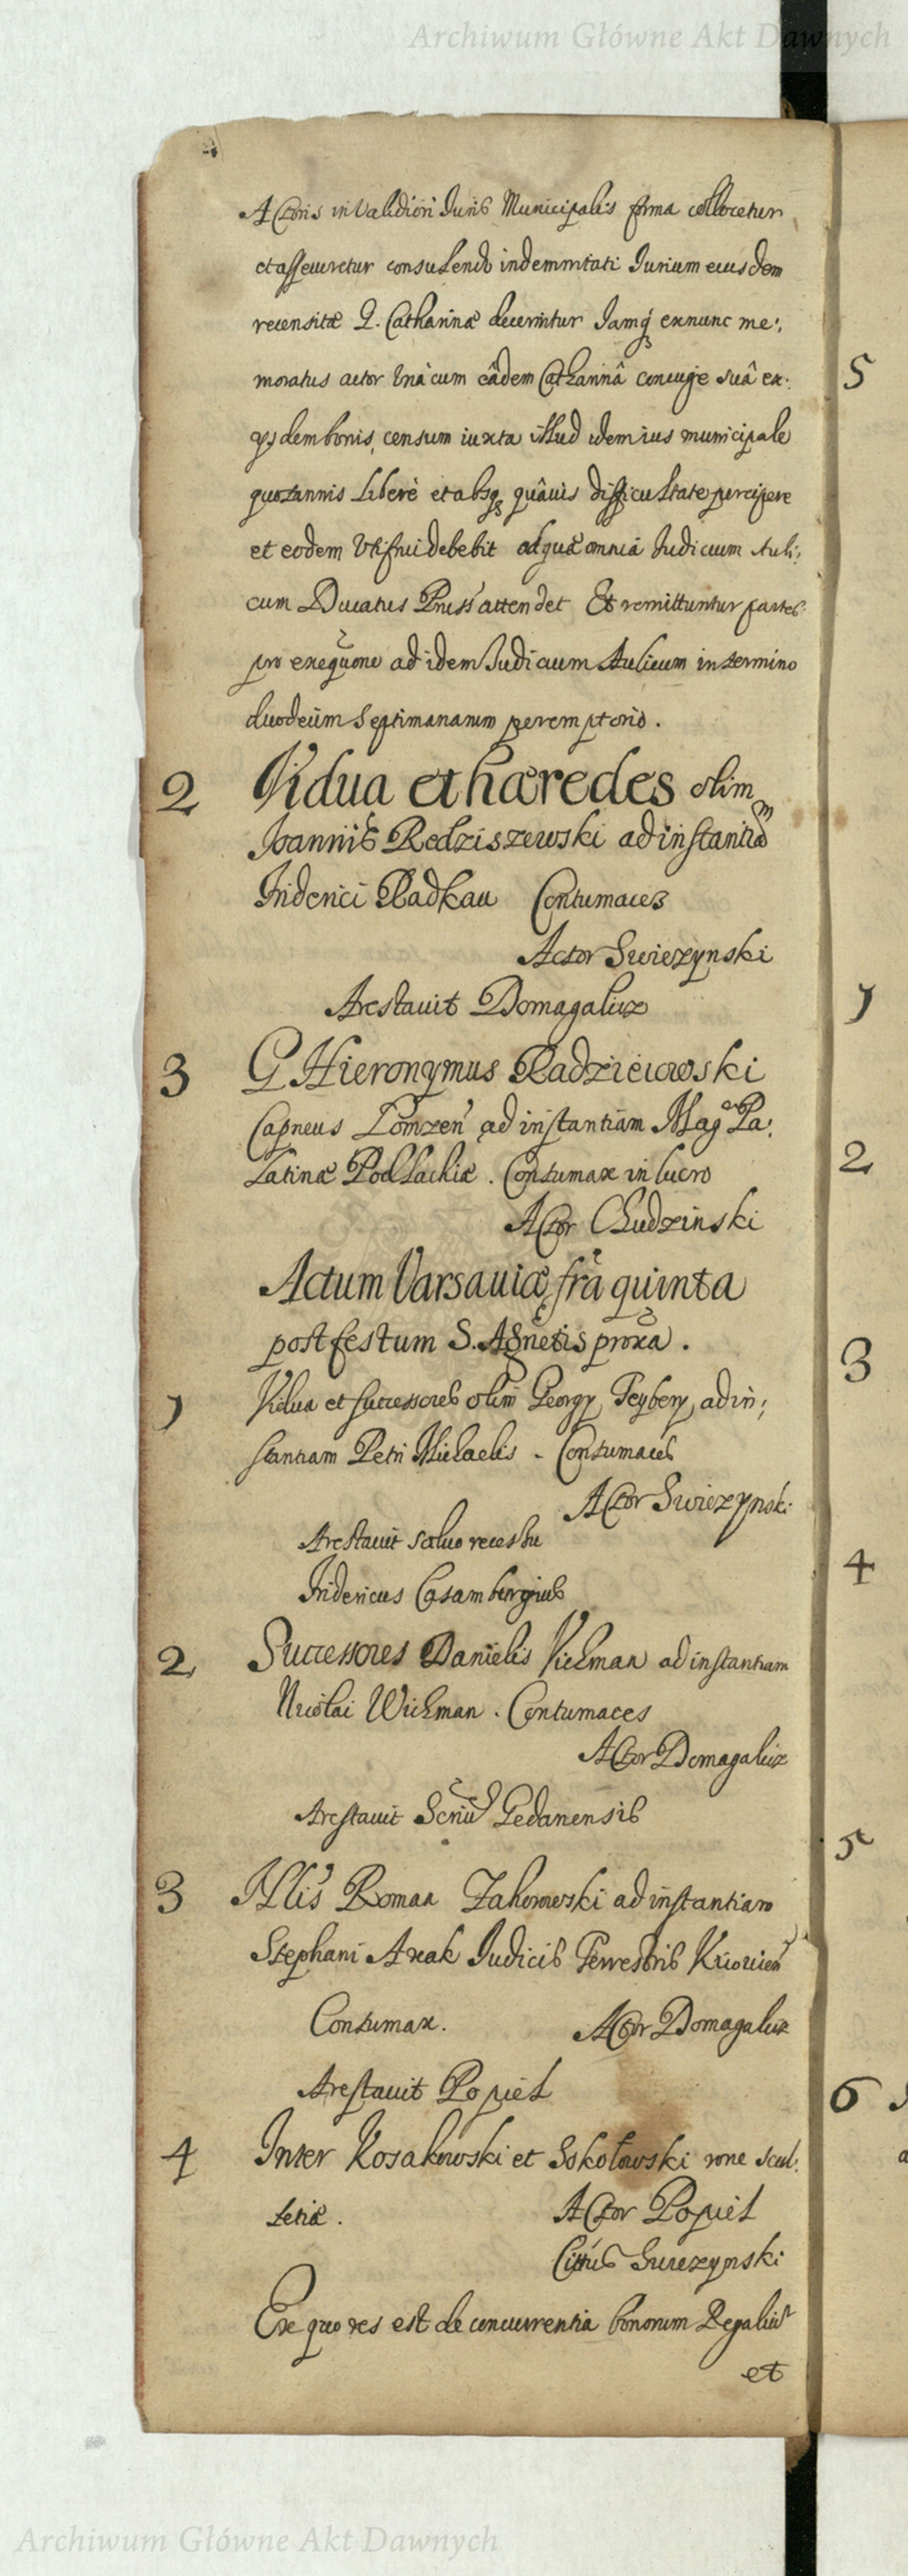 Archiwum Główne Akt Dawnych
Actoris in validiori Iuris Municipalis forma collocetur
et assecuretur consulendo indemnitati Iurium eiusdem
recensitæ G. Catharinæ decernitur Iamq3 exnunc me:
moratus actor unà cum eâdem Catharinâ coniuge suâ ex:
ijsdem bonis, censum iuxta illud idem ius municipale
quotannis Liberè et absq3 quâuis difficultate percipere
et eodem Vtifrui debebit ad quæ omnia Iudicium Auli:
cum Ducatus Pruss attendet Et remittuntur partes
pro exequone ad idem Iudicium Aulicum in termino
duodecim Septimanarum peremptorio.
2 Vidua et hæredes olim
Ioannis Redziszewski ad instantiam
Friderici Radkau Contumaces
Actor Swiezynski
Arestauit Domagalicz
3 G Hieronymus Radzieiowski
Capneus Lomzen ad instantiam Mag Pa:
latinæ Podlachiæ. Contumax in lucro
Actor Chudzinski
Actum Varsauiæ fra quinta
post festum S. Agnetis proxa.
1 Vidua et successores olim Georgy Teybery ad in:
stantiam Petri Michaelis - Contumaces
Actor Swiezynski
Arestauit saluo recessu
Fridericus Casamburgius
2 Successores Danielis Wichman ad instantiam
Nicolai Wichman. Contumaces
Actor Domagalicz
Arestauit Gedanensis
3 Illis Roman Zahorowski ad instantiam
Stephani Axak Iudicis Terrestris Kiiouien
Contumax. Actor Domagalicz
Arestauit Popiel
4 Inter Kosakowski et Sokołowski rone scul:
tetiæ. Actor Popiel
Cittus Swiezynski
Ex quo res est de concurrentia bonorum Regaliu
et
5
1
2
3
4
5
6
Archiwum Główne Akt Dawnych